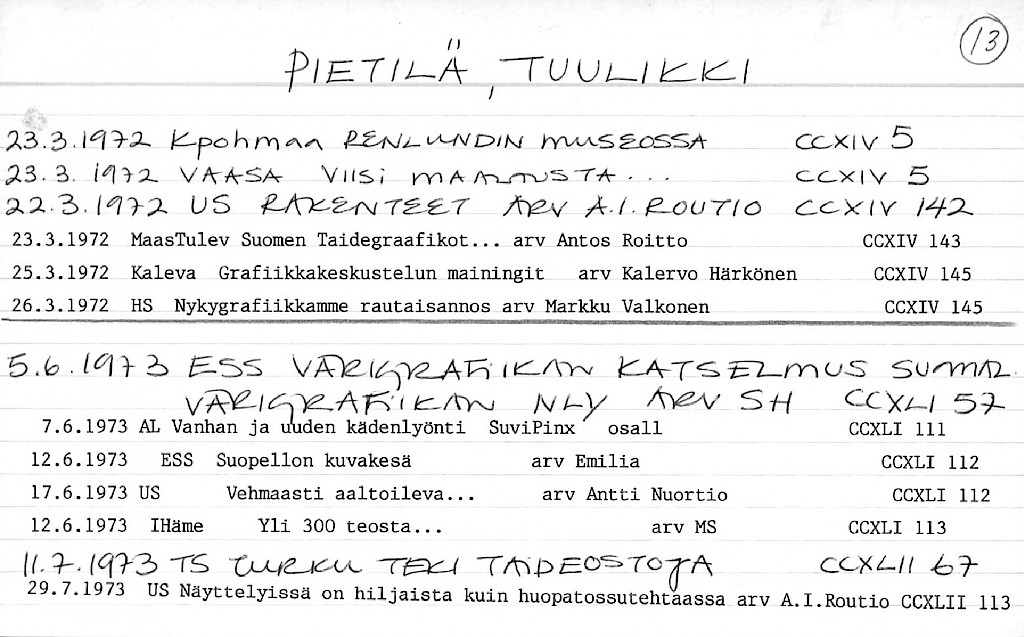 13
PIETILÄ, TUULIKKI
23.3.1972 Kpohmaa RENLUNDIN MUSEOSSA CCXIV 5
23.3.1972 VAASA VIISI MAATUSTA... CCXIV 5
22.3.1972 US RAKENTEET ARV A.I.ROUTIO CCXIV 142
23.3.1972 MaasTulev Suomen Taidegraafikot... arv Antos Roitto CCXIV 143
25.3.1972 Kaleva Grafiikkakeskustelun mainingit arv Kalervo Härkönen CCXIV 145
26.3.1972 HS Nykygrafiikkamme rautaisannos arv Markku Valkonen CCXIV 145
5.6.1973 ESS VÄRIGRAFIIKAN KATSELMUS SUOMAL.
VÄRIGRAFIIKAN NLY ARV SH CCXLI 57
7.6.1973 AL Vanhan ja uuden kädenlyönti SuviPinx osall CCXLI 111
12.6.1973 ESS Suopellon kuvakesä arv Emilia CCXLI 112
17.6.1973 US Vehmaasti aaltoileva... arv Antti Nuortio CCXLI 112
12.6.1973 IHäme Yli 300 teosta... arv MS CCXLI 113
11.7.1973 TS TURKU TEKI TAIDEOSTOJA CCXLII 67
29.7.1973 US Näyttelyissä on hiljaista kuin huopatossutehtaassa arv A.I.Routio CCXLII 113